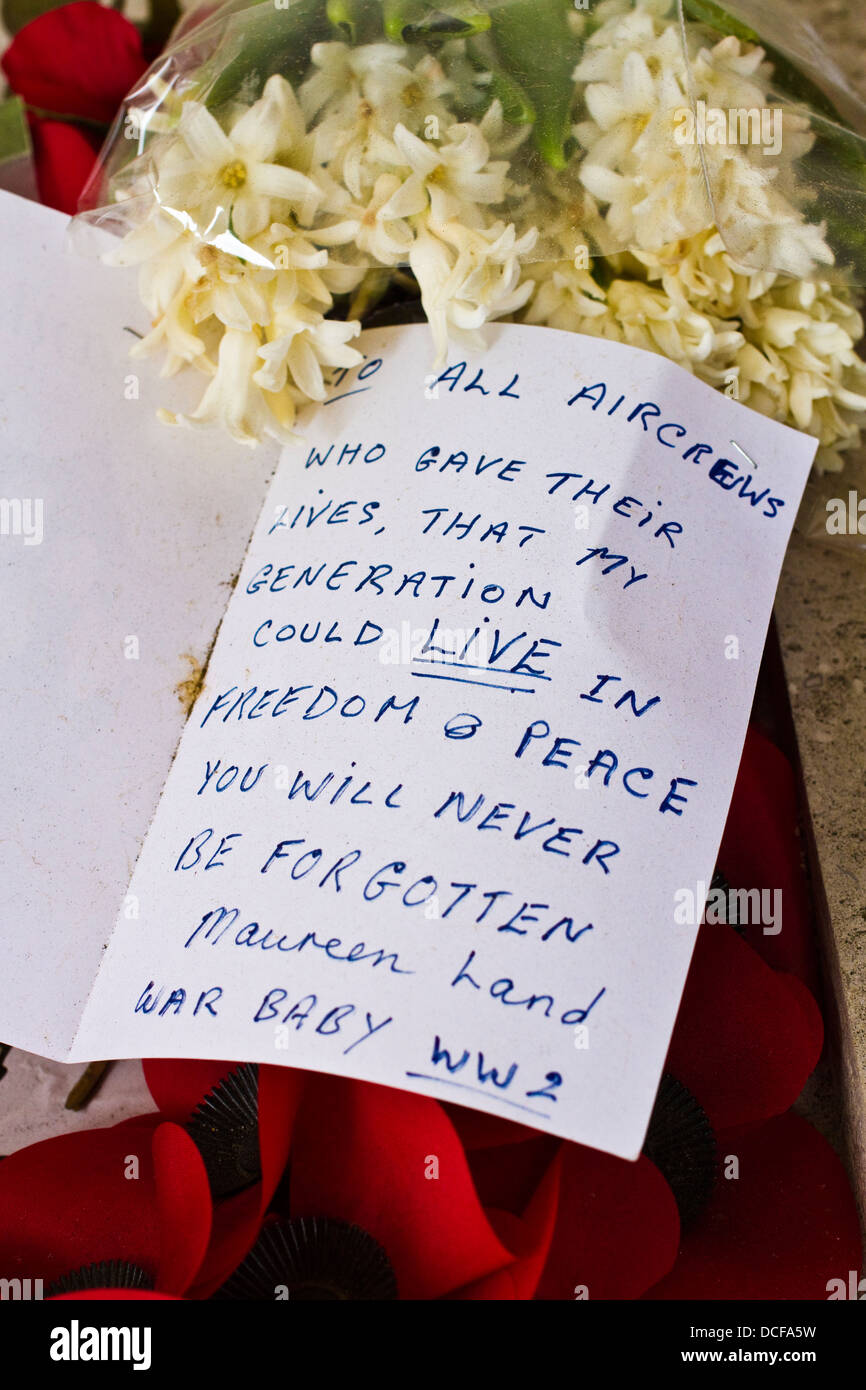 TO ALL AIRCREWS
WHO GAVE THEIR
LIVES, THAT MY
GENERATION
COULD LIVE IN
FREEDOM & PEACE
YOU WILL NEVER
BE FORGOTTEN
Maureen Land
WAR BABY WW2
alamy
a
a
a
a
alamy
Image ID: DCFA5W
www.alamy.com